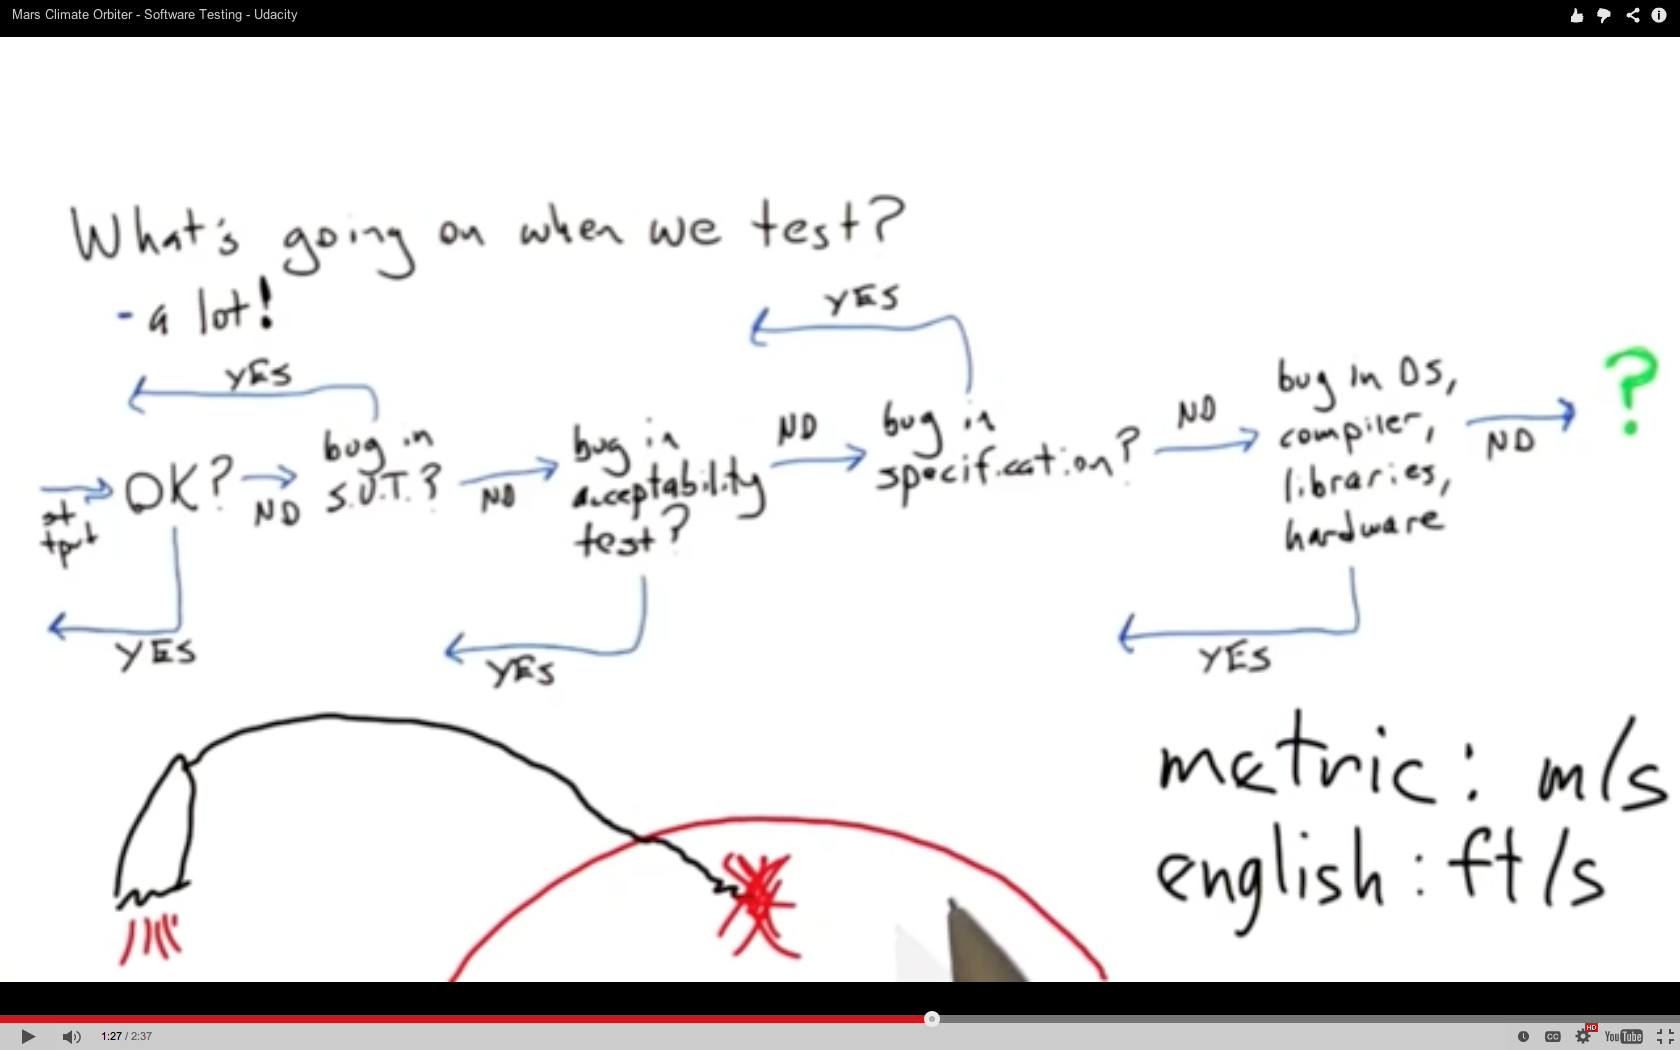 Mars Climate Orbiter - Software Testing - Udacity
What's going on when we test?
- a lot!
YES
YES
OK?
NO
bug in
S.U.T.?
NO
bug in
acceptability
test?
NO
bug in
specification?
NO
bug in OS,
compiler,
libraries,
hardware
NO
?
st
tput
YES
YES
YES
metric: m/s
english: ft/s
1:27 / 2:37
CC
HD
YouTube